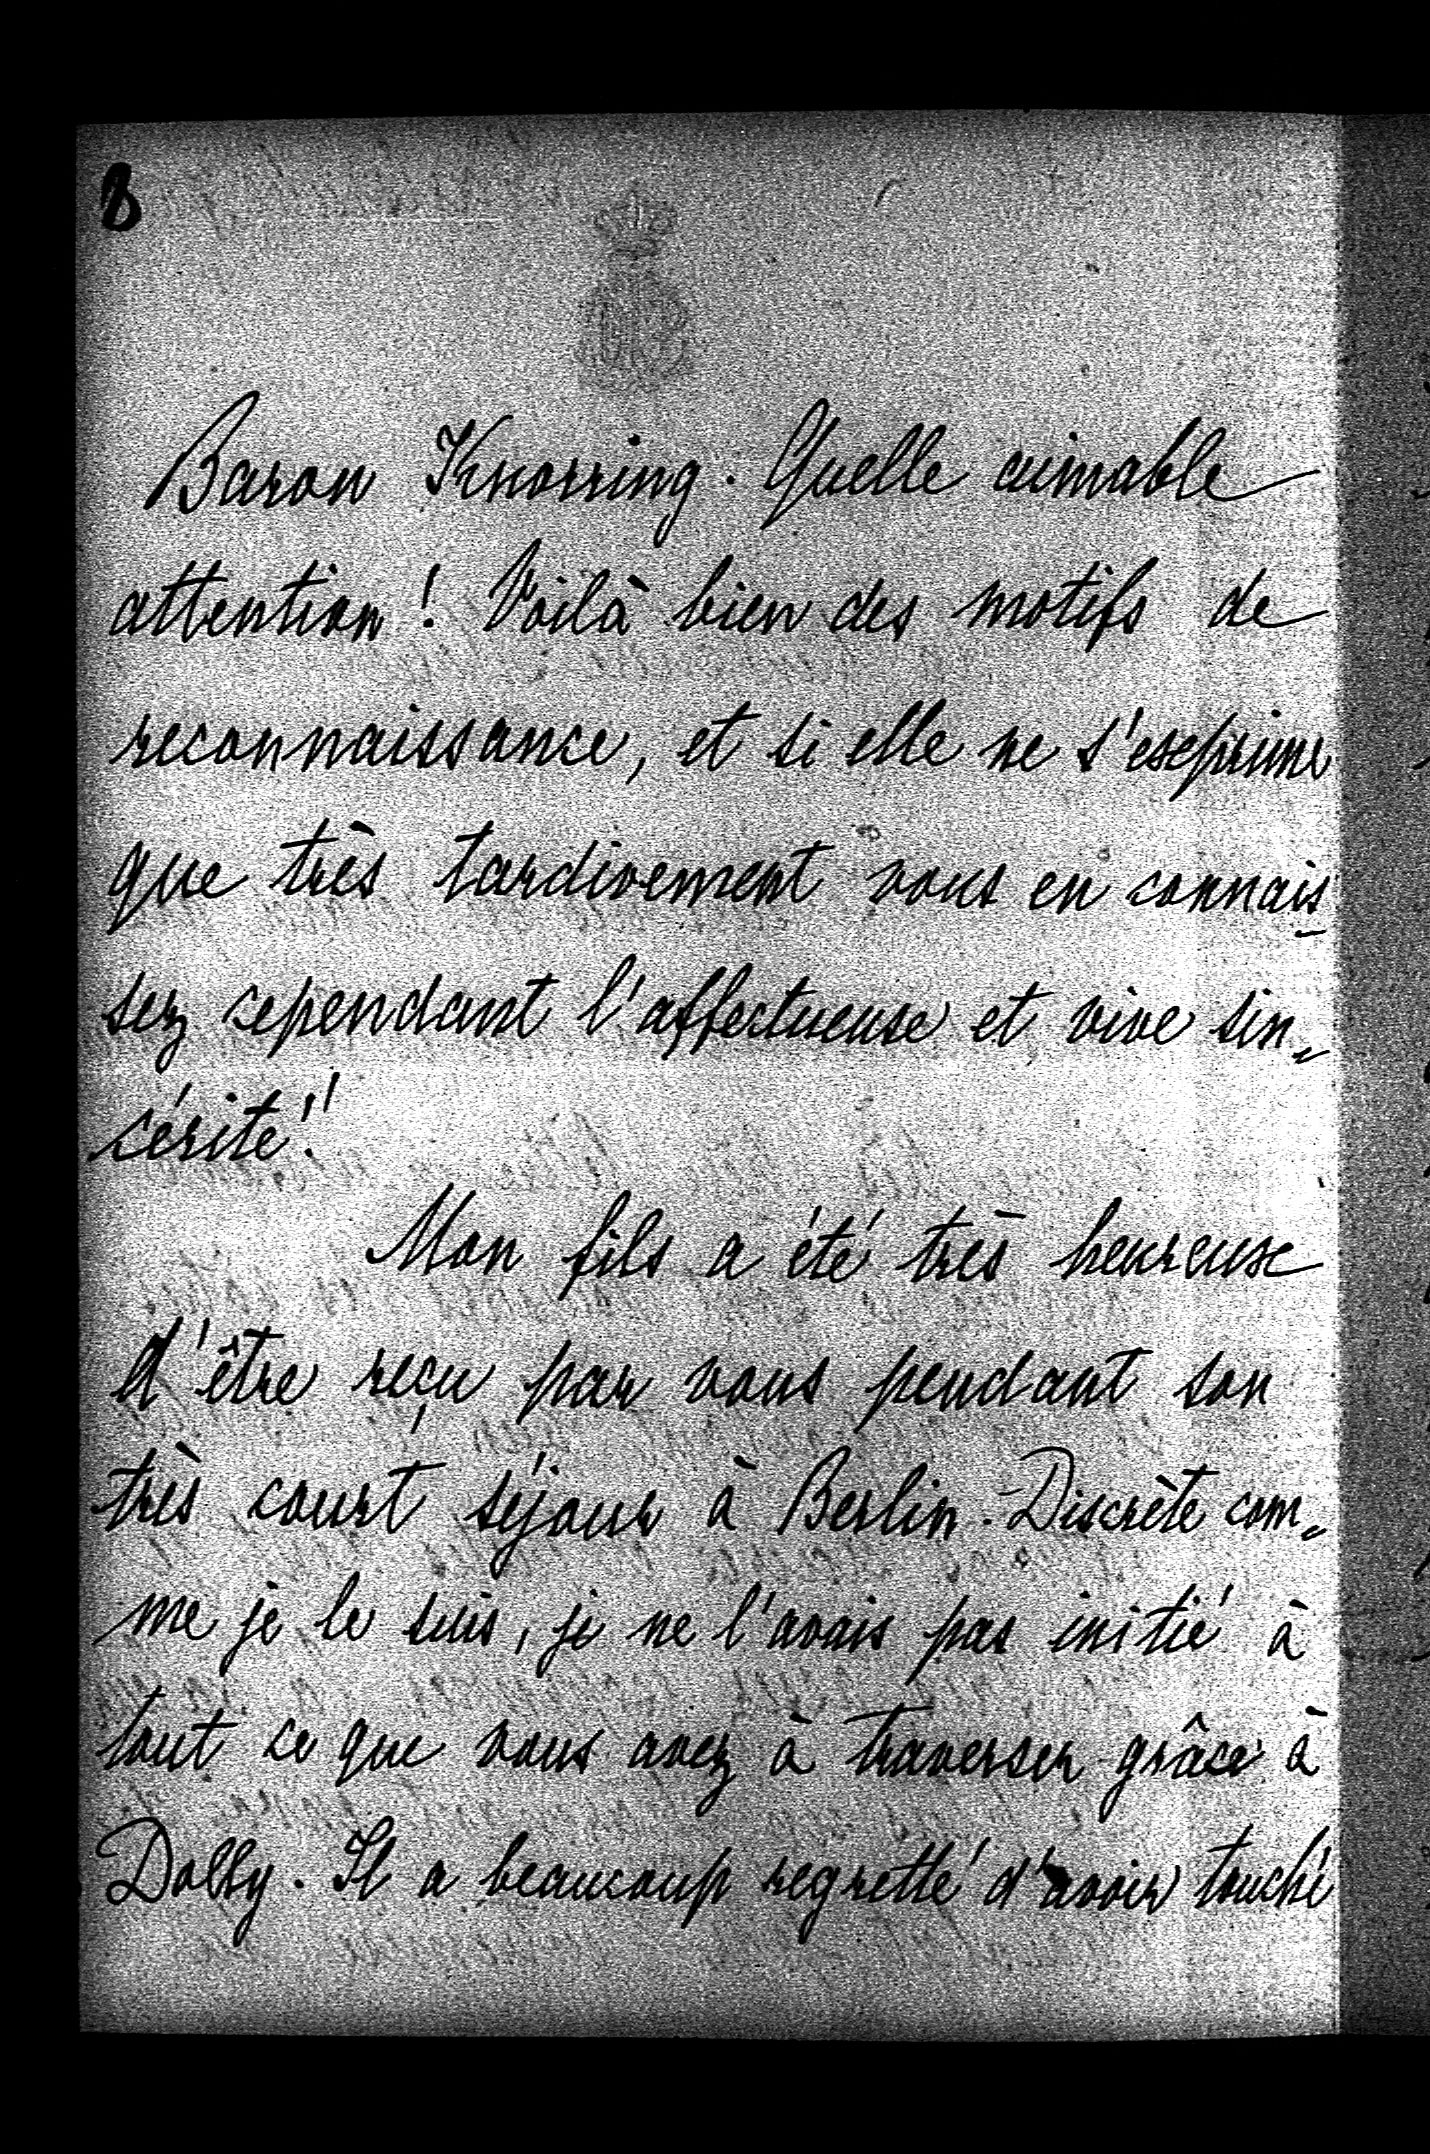 8
Baron Knorring. Quelle aimable
attention! Voilà bien des motifs de
reconnaissance, et si elle ne s'exprime
que très tardivement vous en connais-
sez cependant l'affectueuse et vive sin-
cérité!!
Mon fils a été très heureuse
d'être reçu par vous pendant son
très court séjour à Berlin. Discrète com-
me je le suis, je ne l'avais pas initié à
tout ce que vous avez à traverser grâce à
Dolly. Il a beaucoup regretté d'avoir touché